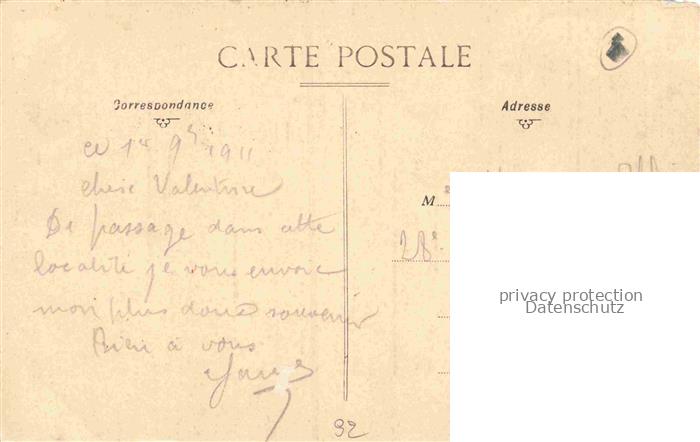 CARTE POSTALE
Correspondance
Adresse
ce 1er 9bre 1911
chère Valentine
De passage dans cette
localité je vous envoie
mon plus doux souvenir
Bien à vous
M
28e
92
privacy protection
Datenschutz